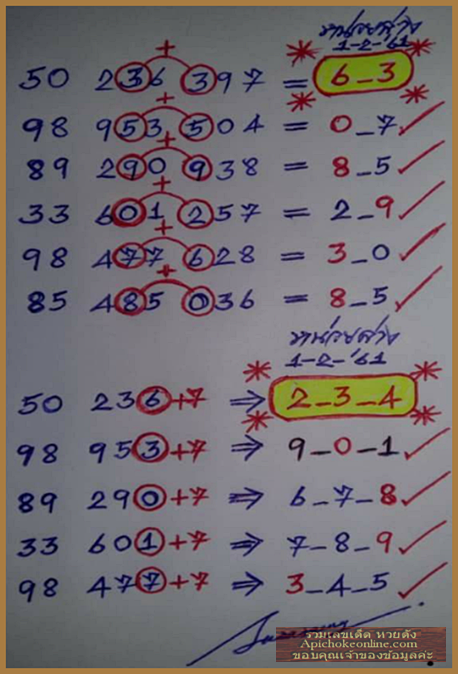 หน่วยล่าง
1-2-'61
50 236 397 = 6_3
98 953 504 = 0_7
89 290 938 = 8_5
33 601 257 = 2_9
98 477 628 = 3_0
85 485 036 = 8_5
หน่วยล่าง
1-2-'61
50 236+7 ⇒ 2_3_4
98 953+7 ⇒ 9_0_1
89 290+7 ⇒ 6_7_8
33 601+7 ⇒ 7_8_9
98 477+7 ⇒ 3_4_5
รวมเลขเด็ด หวยดัง
Apichokeonline.com
ขอบคุณเจ้าของข้อมูลค่ะ